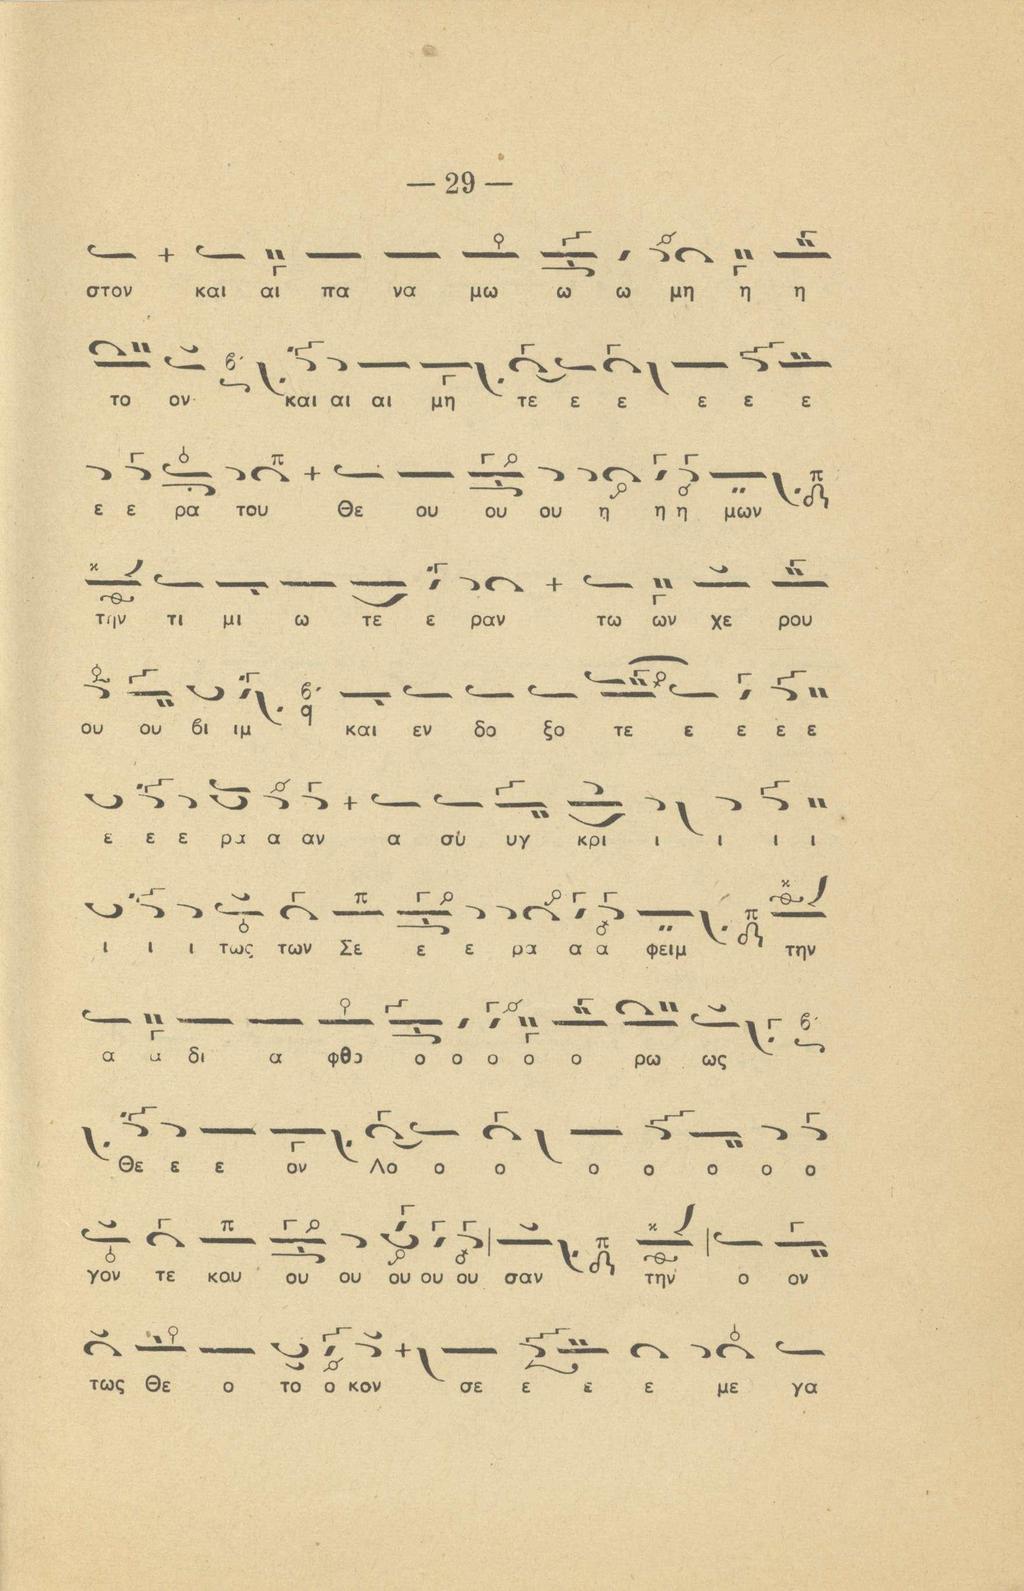 — 29 —
στον και αι πα να μω ω ω μη η η
το ον και αι αι μη τε ε ε ε ε ε
ε ε ρα του Θε ου ου ου η η η μων
την τι μι ω τε ε ραν τω ων χε ρου
ου ου βι ιμ και εν δο ξο τε ε ε ε ε
ε ε ε ρα α αν α σύ υγ κρι ι ι ι ι
ι ι ι τως των Σε ε ε ρα α α φειμ την
α α δι α φθο ο ο ο ο ο ρω ως
Θε ε ε ον Λο ο ο ο ο ο ο ο
γον τε κου ου ου ου ου ου σαν την ο ον
τως Θε ο το ο κον σε ε ε ε με γα